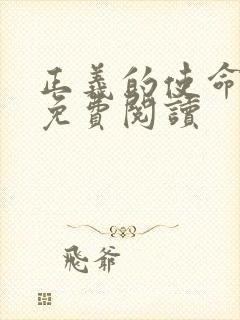 正義的使命
免費閱讀
飛爺